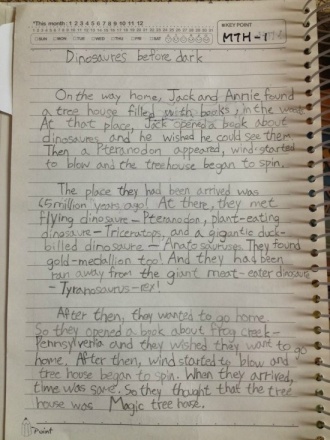 *This month : 1 2 3 4 5 6 7 8 9 10 11 12
1 2 3 4 5 6 7 8 9 10 11 12 13 14 15 16 17 18 19 20 21 22 23 24 25 26 27 28 29 30 31
SUN MON TUE WED THU FRI SAT
*KEY POINT
MTH-1
Dinosaures before dark
On the way home, Jack and Annie found
a tree house filled with books, in the
At that place, Jack opened a book about
dinosaures and he wished he could see them
Then a Pteranodon appeared, wind started
to blow and the treehouse began to spin.
The place they had been arrived was
65 million years ago! At there, they met
flying dinosaure - Pteranodon, plant-eating
dinosaure - Triceratops, and a gigantic duck-
billed dinosaure - Anatosauruses They found
gold-medallion too! And they had been
ran away from the giant meat-eater dinosaure
- Tyranosaurus-rex!
After then, they wanted to go home.
So they opened a book about Frog creek -
Pennsylvenia and they wished they want to go
home. After then, wind started to blow and
tree house began to spin. When they arrived,
time was same. So they thought that the tree
house was Magic tree hose.
Point